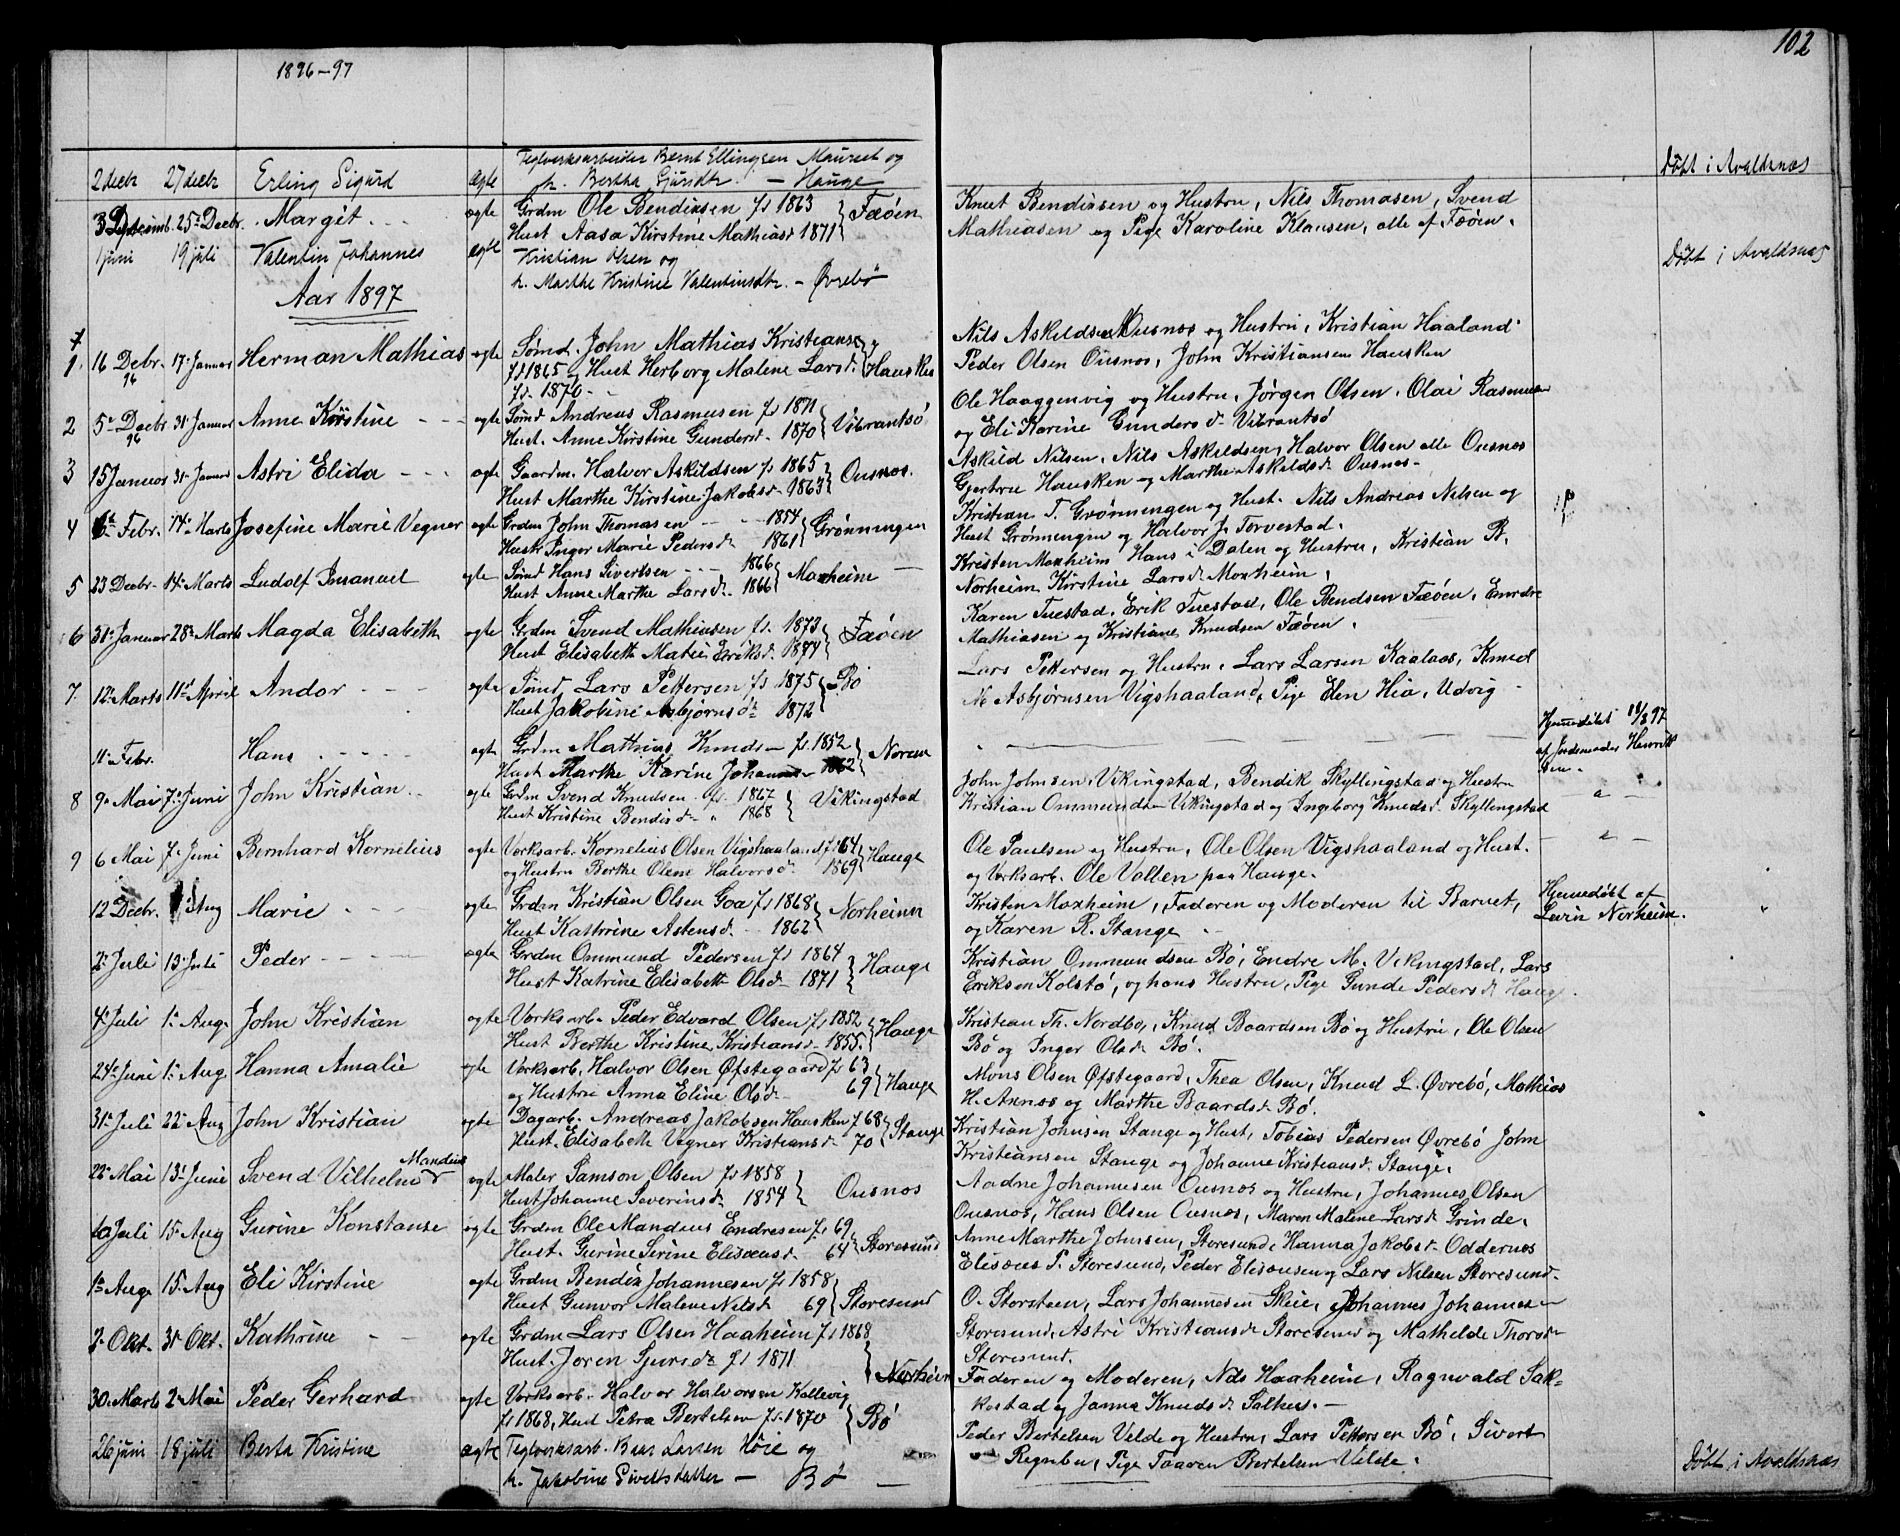 102
1896-97
2 decbr 27 decbr Erling Sigurd ægte Teglverksarbeider Bernt Ellingsen Mauset og
h. Bertha Gjursdtr. - Hauge
Døbt i Avaldsnæs
25 Decbr. Margit ægte Grdm Ole Bendixsen fd 1863
Hust Aasa Kirstine Mathiasd 1871 } Fæøen
Knut Bendixsen og Hustru, Nils Thomasen, Svend
Mathiasen og Pige Karoline Klausen, alle af Fæøen.
1 juni 19 juli Valentin Johannes ægte Kristian Olsen og
h. Marthe Kristine Valentinsdtr. - Øvrebø
Døbt i Avaldsnæs
Aar 1897
1. 16 Debr. 96 17 Januar Herman Mathias ægte Tømd. John Mathias Kristiansen
fd 1865 og Hust Herborg Malene Larsd. } Hausken
fd. 1870
Nils Askildsen Ousnos og Hustru, Kristian Haaland
Peder Olsen Ousnos, John Kristiansen Hausken
2 5 Decbr 96 31 Januar Anne Kirstine ægte Tømd Andreas Rasmusen fd 1871
Hust. Anne Kirstine Gundersd. 1870 } Vibrantsø
Ole Haaggenvig og Hustru, Jørgen Olsen, Olai Rasmusen
og Eli Karine Gundersd. Vibrantsø
3 15 Januar 31 Januar Astri Elida ægte Gaardm. Halvor Askildsen fd 1865
Hust Marthe Kirstine Jakobsd. 1863 } Ousnos.
Askild Nilsen, Nils Askildsen, Halvor Olsen alle Ousnos
Gjertru Hausken og Marthe Askildsd. Ousnos
4 Febr. 14 Marts Josefine Marie Vegner ægte Grdm John Thomasen 1854
Hustr Inger Marie Pedersd. 1861 } Grønningen
Kristian T. Grønningen og Hust. Nils Andreas Nilsen og
Hust Grønningen og Halvor J. Torvestad.
5 23 Decbr 14 Marts Ludolf Imanuel ægte Tømd Hans Sivertsen 1866
Hust Anne Marthe Larsd. 1866 } Moxheim
Kristen Moxheim Hans i Dalen og Hustru, Kristian B.
Norheim Kirstine Larsd. Moxheim,
6 31 Januar 28 Marts Magda Elisabeth ægte Grdm Svend Mathiasen fd. 1873
Hust Elisabeth Matie Eriksd. 1874 } Fæøen
Karen Tuestad, Erik Tuestad, Ole Bendsen Fæøen, Endre
Mathiasen og Kristiane Knudsen Fæøen.
7. 12 Marts 11 April Andor ægte Tømd Lars Pettersen fd 1875
Hust Jakobine Asbjørnsd. 1872 } Bø
Lars Pettersen og Hustru, Lars Larsen Kaalaas, Knud
M Asbjørnsen Vigshaaland, Pige Elen Hia, Udvig
11 Febr. Hans ægte Grdm Mathias Knudsen fd. 1852
Hust Marthe Karine Johannes 1862 } Noreim
Hjemmedøbt 11/2 97
af Jordemoder Henriksen.
8 9 Mai 7 Juni John Kristian ægte Grdm Svend Knudsen fd. 1867
Hust Kristine Bendixd. " 1868 } Vikingstad
John Johnsen Vikingstad, Bendik Skyllingstad og Hustru
Kristian Ommundsen Vikingstad og Ingeborg Knudsd. Skyllingstad
9 6 Mai 7 Juni Bernhard Kornelius ægte Verksarb. Kornelius Olsen Vigshaaland fd 64
og Hustru Berthe Olene Halvorsd. 1869 } Hauge
Ole Paulsen og Hustru, Ole Olsen Vigshaaland og Hust.
og Verksarb. Ole Vollen paa Hauge.
12 Decbr. Aug Marie ægte Grdm Kristian Olsen Goa fd 1868
Hust Kathrine Astensd. 1862 } Norheim
Kristen Moxheim, Faderen og Moderen til Barnet,
og Karen R. Stange
Hjemmedøbt af
Lavin Norheim.
2 Juli 13 Juli Peder ægte Grdm Ommund Pedersen fd 1864
Hust Katrine Elisabeth Olsd. 1871 } Hauge
Kristian Ommundsen Bø, Endre M. Vikingstad, Lars
Eriksen Kolstø, og hans Hustru, Pige Gunde Pedersd. Hauge.
4 Juli 1 Aug. John Kristian ægte Verksarb. Peder Edvard Olsen fd 1852
Hust Berthe Kristine Kristiansd. 1855. } Hauge
Kristian Th. Nordbø, Knud Baardsen Bø og Hustru, Ole Olsen
Bø og Inger Olsd. Bø.
24 Juni 1 Aug Hanna Amalie ægte Verksarb. Halvor Olsen Øfstegaard fd 63
og Hustru Anna Eline Olsd. 69 } Hauge
Mons Olsen Øfstegaard, Thea Olsen, Knud L. Øvrebø, Mathias
H. Annos og Marthe Baardsd. Bø.
31 Juli 22 Aug John Kristian ægte Dagarb. Andreas Jakobsen Hausken f 68
Hust. Elisabeth Vegner Kristiansd. 70 } Stange
Kristian Johnsen Stange og Hust, Tobias Pedersen Øvrebø John
Kristiansen Stange og Johanne Kristiansd. Stange.
22 Mai 13 Juni Svend Vilhelm Mandius ægte Maler Samson Olsen fd 1858
Hust Johanne Severinsd. 1854 } Ousnos
Aadne Johannesen Ousnos og Hustru, Johannes Olsen
Ousnos, Hans Olsen Ousnos, Maren Malene Larsd. Grinde.
10 Juli 15 Aug Gurine Konstanse ægte Grdm Ole Mandius Endresen fd 69
Hust. Gurine Serine Elisæusd. 64 } Storesund
Anne Marthe Johnsen, Storesund, Hanna Jakobsd. Oddernes
Elisæus P. Storesund, Peder Elisæusen og Lars Nilsen Storesund.
1 Aug 15 Aug Eli Kirstine ægte Grdm Bendix Johannesen fd 1858
Hust Gunvor Malene Nilsd. 69 } Storesund
O. Storsteen, Lars Johannesen Skeie, Johannes Johannesen
Storesund, Astri Kristiansd. Storesund og Mathilde Thorsd.
Storesund.
2 Okt. 31 Okt. Kathrine ægte Grdm Lars Olsen Haaheim fd 1868
Hust. Joren Sjursdt. fd 1871 } Norheim
Faderen og Moderen, Nils Haaheim, Ragnvald Sakkestad og Janna Knudsd. Salhus.
30 Marts 2 Mai Peder Gerhard ægte Verksarb. Halvor Halvorsen Kallevig
fd 1868, Hust Petra Bertelsen fd. 1870 } Bø
Peder Bertelsen Velde og Hustru, Lars Pettersen Bø, Sivert
Pige Taaren Bertelsen Velde.
26 juni 18 juli Berta Kristine ægte Teglverksarb. Baar Larsen Høie og
h. Jakobine Sivertsdatter - Bø
Døbt i Avaldsnæs